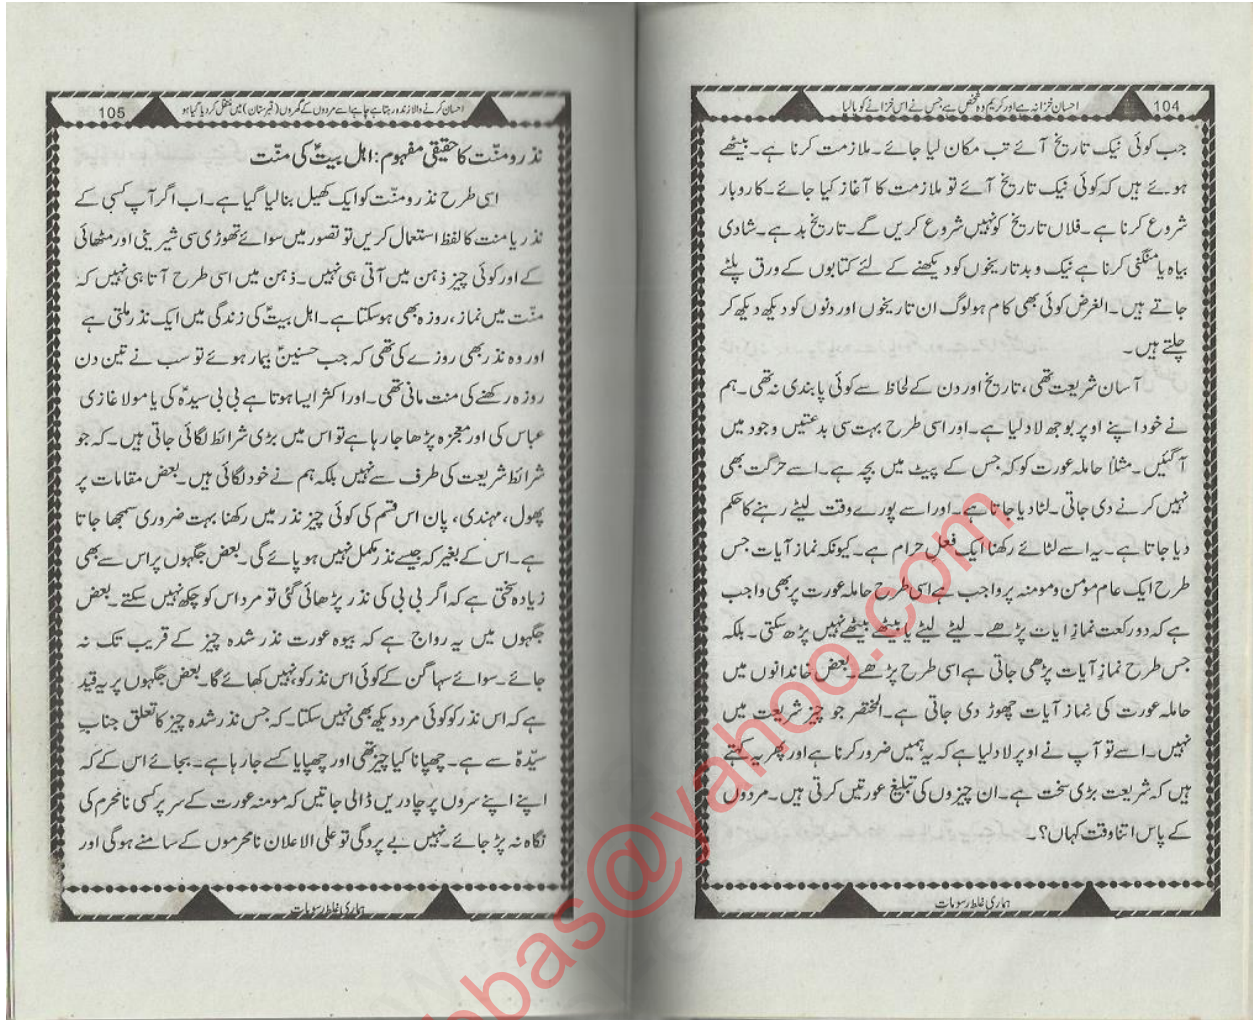 احسان خزانہ ہے اور کریم وہ شخص ہے جس نے اس خزانے کو پا لیا
104
جب کوئی نیک تاریخ آئے تب مکان لیا جائے۔ ملازمت کرنا ہے۔ بیٹھے
ہوئے ہیں کہ کوئی نیک تاریخ آئے تو ملازمت کا آغاز کیا جائے۔ کاروبار
شروع کرنا ہے۔ فلاں تاریخ کو نہیں شروع کریں گے۔ تاریخ بد ہے۔ شادی
بیاہ یا منگنی کرنا ہے نیک و بد تاریخوں کو دیکھنے کے لئے کتابوں کے ورق پلٹے
جاتے ہیں۔ الغرض کوئی بھی کام ہو لوگ ان تاریخوں اور دنوں کو دیکھ دیکھ کر
چلتے ہیں۔
آسان شریعت تھی، تاریخ اور دن کے لحاظ سے کوئی پابندی نہ تھی۔ ہم
نے خود اپنے اوپر بوجھ لاد لیا ہے۔ اور اسی طرح بہت سی بدعتیں وجود میں
آ گئیں۔ مثلاً حاملہ عورت کو کہ جس کے پیٹ میں بچہ ہے۔ اسے حرکت بھی
نہیں کرنے دی جاتی۔ لٹا دیا جاتا ہے۔ اور اسے پورے وقت لیٹے رہنے کا حکم
دیا جاتا ہے۔ یہ اسے لٹائے رکھنا ایک فعلِ حرام ہے۔ کیونکہ نماز آیات جس
طرح ایک عام مومن و مومنہ پر واجب ہے اسی طرح حاملہ عورت پر بھی واجب
ہے کہ دو رکعت نمازِ آیات پڑھے۔ لیٹے لیٹے یا بیٹھے بیٹھے نہیں پڑھ سکتی۔ بلکہ
جس طرح نمازِ آیات پڑھی جاتی ہے اسی طرح پڑھے۔ بعض خاندانوں میں
حاملہ عورت کی نماز آیات چھوڑ دی جاتی ہے۔ المختصر جو چیز شریعت میں
نہیں۔ اسے تو آپ نے اوپر لاد لیا ہے کہ یہ ہمیں ضرور کرنا ہے اور پھر یہ کہتے
ہیں کہ شریعت بڑی سخت ہے۔ ان چیزوں کی تبلیغ عورتیں کرتی ہیں۔ مردوں
کے پاس اتنا وقت کہاں؟۔
ہماری غلط رسومات
احسان کرنے والا زندہ رہتا ہے چاہے اسے مردوں کے گھروں (قبرستان) میں منتقل کر دیا گیا ہو
105
نذر و منّت کا حقیقی مفہوم: اہل بیتؑ کی منّت
اسی طرح نذر و منّت کو ایک کھیل بنا لیا گیا ہے۔ اب اگر آپ کسی کے
نذر یا منت کا لفظ استعمال کریں تو تصور میں سوائے تھوڑی سی شیرینی اور مٹھائی
کے اور کوئی چیز ذہن میں آتی ہی نہیں۔ ذہن میں اسی طرح آتا ہی نہیں کہ
منّت میں نماز، روزہ بھی ہو سکتا ہے۔ اہل بیتؑ کی زندگی میں ایک نذر ملتی ہے
اور وہ نذر بھی روزے کی تھی کہ جب حسنینؑ بیمار ہوئے تو سب نے تین دن
روزہ رکھنے کی منت مانی تھی۔ اور اکثر ایسا ہوتا ہے بی بی سیدہؑ کی یا مولا غازی
عباس کی اور معجزہ پڑھا جا رہا ہے تو اس میں بڑی شرائط لگائی جاتی ہیں۔ کہ جو
شرائط شریعت کی طرف سے نہیں بلکہ ہم نے خود لگائی ہیں۔ بعض مقامات پر
پھول، مہندی، پان اس قسم کی کوئی چیز نذر میں رکھنا بہت ضروری سمجھا جاتا
ہے۔ اس کے بغیر کہ جیسے نذر مکمل نہیں ہو پائے گی۔ بعض جگہوں پر اس سے بھی
زیادہ سختی ہے کہ اگر بی بی کی نذر پڑھائی گئی تو مرد اس کو چکھ نہیں سکتے۔ بعض
جگہوں میں یہ رواج ہے کہ بیوہ عورت نذر شدہ چیز کے قریب تک نہ
جائے۔ سوائے سہاگن کے کوئی اس نذر کو نہیں کھائے گا۔ بعض جگہوں پر یہ قید
ہے کہ اس نذر کو کوئی مرد دیکھ بھی نہیں سکتا۔ کہ جس نذر شدہ چیز کا تعلق جنابِ
سیّدہؑ سے ہے۔ چھپانا کیا چیز تھی اور چھپایا کسے جا رہا ہے۔ بجائے اس کے کہ
اپنے اپنے سروں پر چادریں ڈالی جاتیں کہ مومنہ عورت کے سر پر کسی نامحرم کی
نگاہ نہ پڑ جائے۔ نہیں بے پردگی تو علی الاعلان نامحرموں کے سامنے ہو گی اور
ہماری غلط رسومات
bbas@yahoo.com